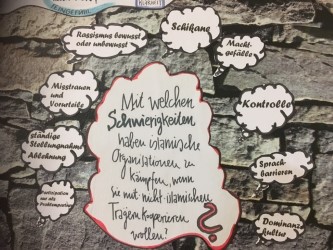 Schikane
Rassismus bewusst
oder unbewusst
Macht-
gefälle
Misstrauen
und
Vorurteile
Kontrolle
ständige
Stellungnahme
Ablehnung
Sprach-
barrieren
Partizipation
nur als
Problempartizip.
Dominanz-
kultur
Mit welchen
Schwierigkeiten
haben islamische
Organisationen zu
kämpfen, wenn
sie mit nicht-islamischen
Trägern kooperieren
wollen?